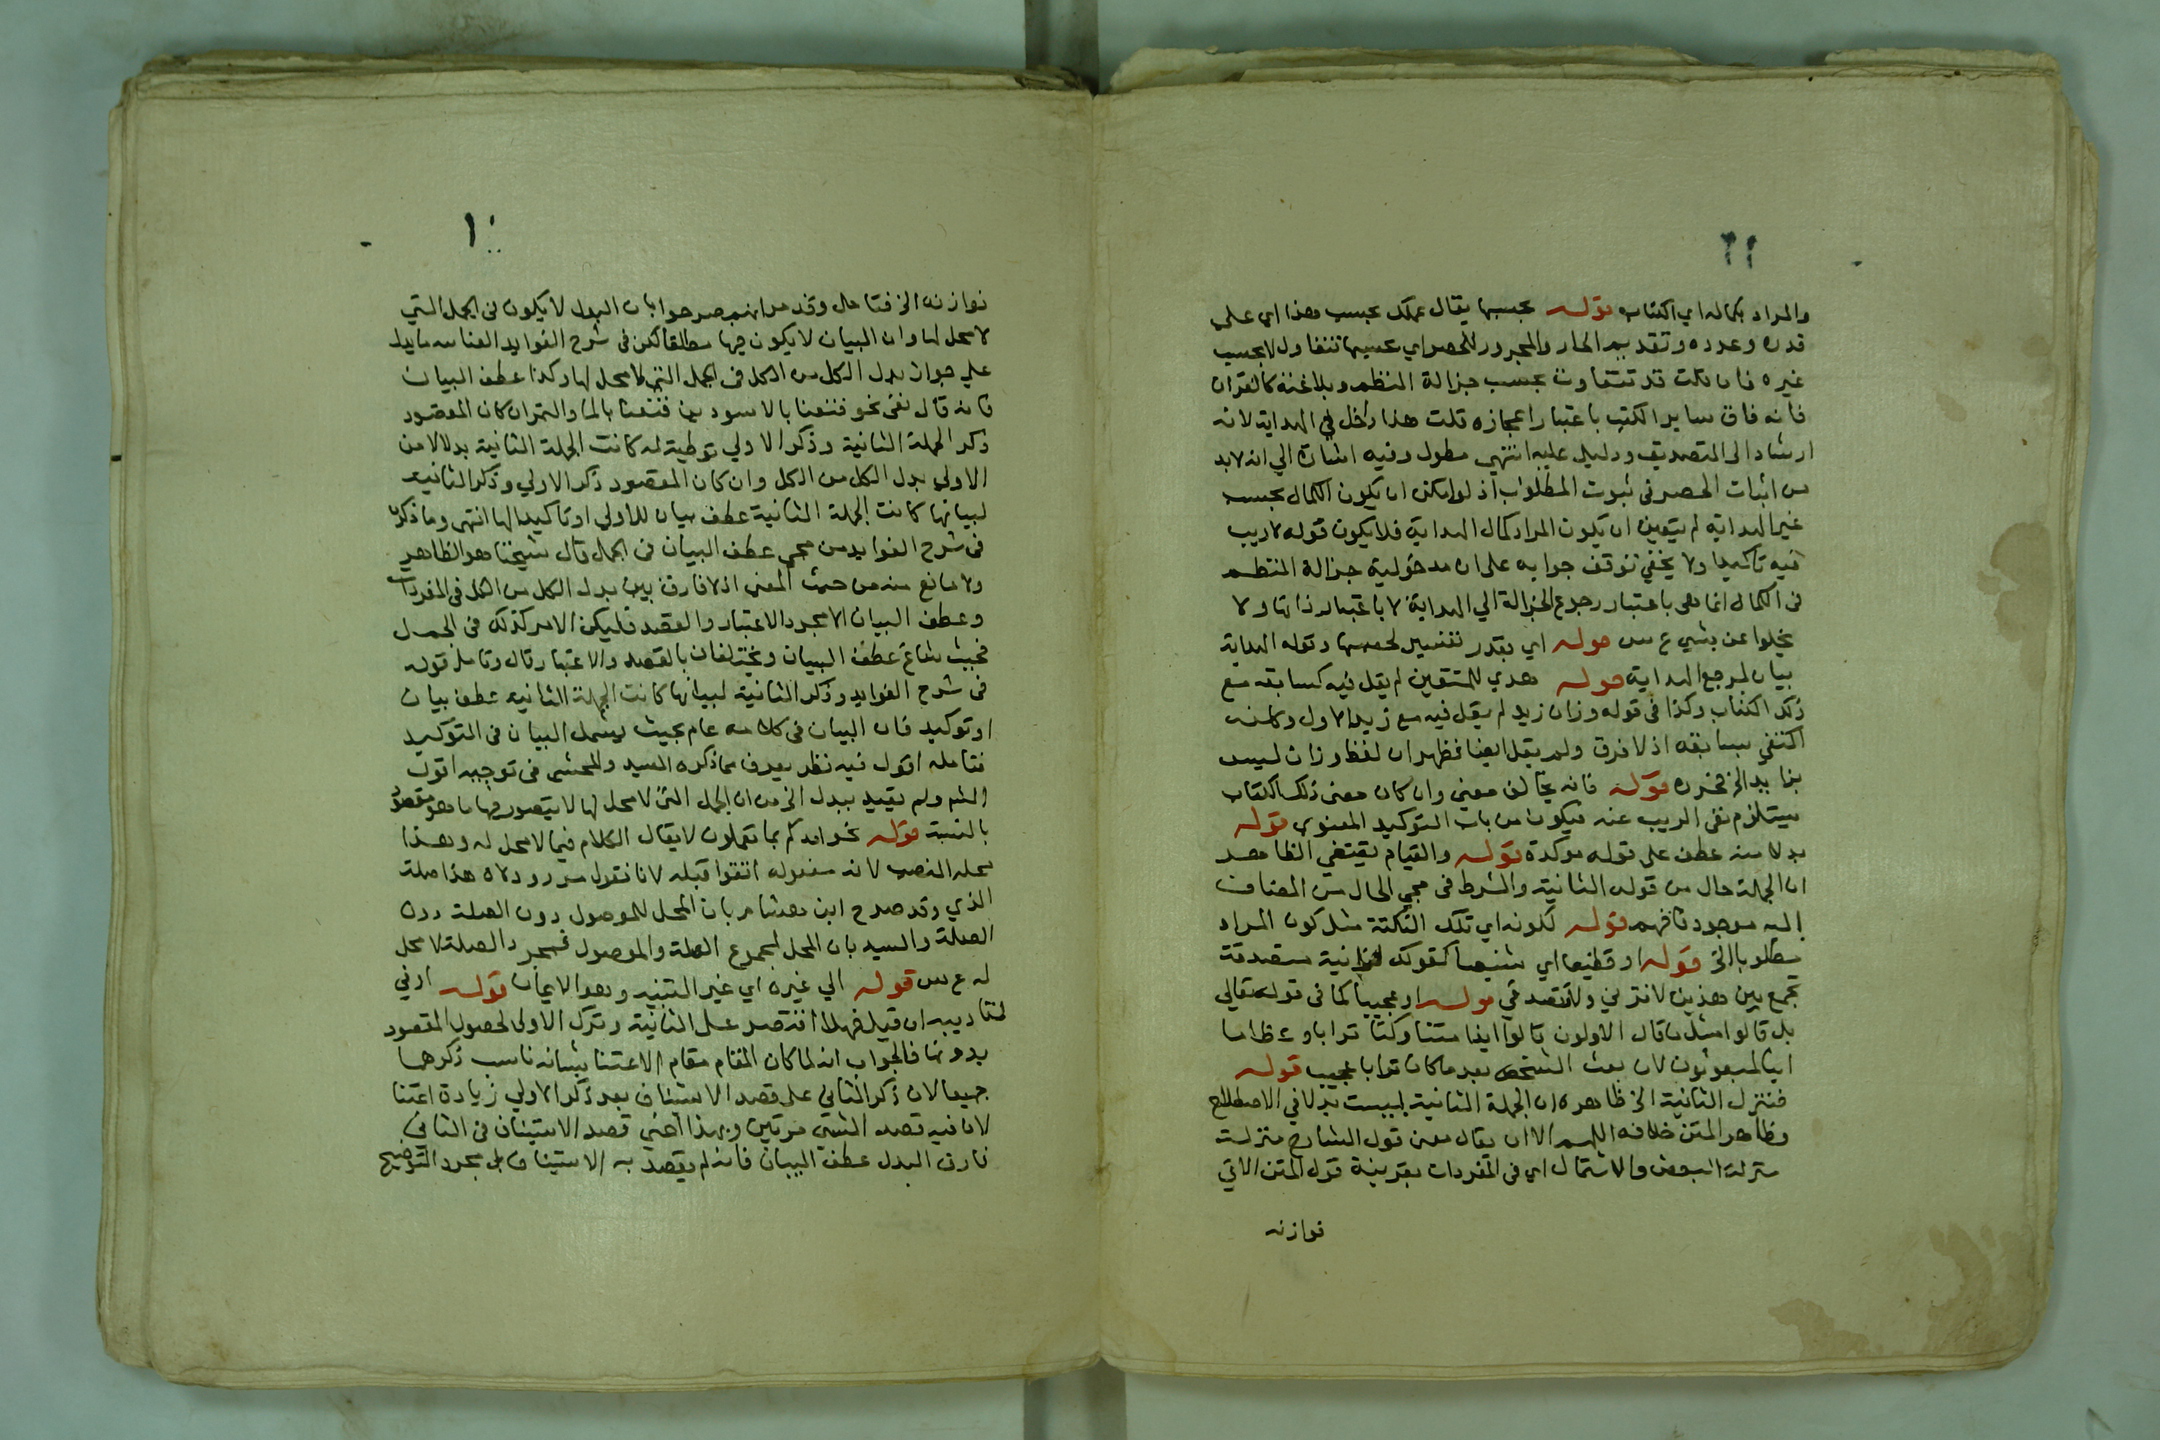 والمراد بكماله اي الكتاب قوله بحسبها يقال عملك بحسب هذا اي علي
قدره وعدده وتقديم الجار والمجرور للحصر اي بحسبها تتفاوت لا بحسب
غيره فان قلت قد تتفاوت بحسب جزالة النظم وبلاغته كالقران
فانه فاق ساير الكتب باعتبار اعجازه قلت هذا داخل في الهداية لانه
ارشاد الى التصديق ودليل عليه انتهي مطول وفيه اشارة الي انه لابد
من اثبات الحصر في ثبوت المطلوب اذ لو امكن ان يكون الكمال بحسب
غير الهداية لم يتعين ان يكون المراد كمال الهداية فلا يكون قوله لا ريب
فيه تاكيدا ولا يخفي توقف جوابه على ان مدخولية جزالة النظم
في الكمال انما هي باعتبار رجوع الجزالة الي الهداية لا باعتبار ذاتها ولا
يخلوا عن شي ع س قوله اي بقدر تفسير لحسبها وقوله الهداية
بيان لمرجع الهداية قوله هدي للمتقين لم يقل فيه كسابقه مع
ذلك الكتاب وكذا في قوله وزان زيد لم يقل فيه مع زيد الاول وكانه
اكتفي بسابقه اذ لا فرق ولم يقل ايضا فظهر ان لفظ وزان ليس
بزايد الخ فخره قوله فانه يخالف معني وان كان معنى ذلك الكتاب
يستلزم نفى الريب عنه فيكون من باب التوكيد المعنوي قوله
بدلا منه عطف على قوله موكدة قوله والقيام يقتضي الظاهر
ان الجملة حال من قوله الثانية والشرط في مجي الحال من المضاف
اليه موجود فافهم قوله لكونه اي تلك النكتة مثل كون المراد
مطلوبا الخ قوله او فظيعا اي شنيعا كقولك لزانية متصدقة
تجمع بين هذين لا تزني ولا تتصدقي قوله او عجيبا كما في قوله تعالي
بل قالوا مثل ما قال الاولون قالوا ايذا متنا وكنا ترابا وعظاما
اينا لمبعوثون لان بعث الشخص بعد ما كان ترابا عجيب قوله
فتنزل الثانية الخ ظاهره ان الجملة الثانية ليست بدلا في الاصطلاح
وظاهر المتن خلافه اللهم الا ان يقال معنى قول الشارح منزلة
منزلة البعض والاشتمال اي في المفردات بقرينة قول المتن الاتي
فوازنه
فوازنه الخ فتامل وقد مر انهم صرحوا بان البدل لا يكون في الجمل التي
لا محل لها وان البيان لا يكون فيها مطلقا لكن في شرح الفوايد الغياثيه ما يدل
علي جواز بدل الكل من الكل في الجمل التي لا محل لها وكذا عطف البيان
فانه قال نفي نحو قنعنا بالاسودين قنعنا بالما والتمر ان كان المقصود
ذكر الجملة الثانية وذكر الاولي توطية له كانت الجملة الثانية بدلا من
الاولي بدل الكل من الكل وان كان المقصود ذكر الاولي وذكر الثانية
لبيانها كانت الجملة الثانية عطف بيان للاولي او تاكيدا لها انتهي وما ذكره
في شرح الفوايد من مجي عطف البيان في الجمل قال شيخنا هو الظاهر
ولا مانع منه من حيث المعني اذ لا فارق بين بدل الكل من الكل في المفردات
وعطف البيان الا مجرد الاعتبار والقصد فليكن الامر كذلك في الجمل
فحيث ساغ عطف البيان ويختلفان بالقصد والاعتبار قال وتامل قوله
في شرح الفوايد وذكر الثانية لبيانها كانت الجملة الثانيه عطف بيان
او توكيد فان البيان في كلامه عام بحيث يشمل البيان في التوكيد
فتامله اقول فيه نظر يعرف مما ذكره السيد والمحشي في توجيه اقول
الشم ولم يقيد ببدل الخ من ان الجمل التي لا محل لها لا يتصور فيها ما هو مقصود
بالنسبة قوله نحو امدكم بما تعملون لا يقال الكلام فيما لا محل له وهذا
محله النصب لانه مفعوله اتقوا قبله لانا نقول مردود لان هذا صلة
الذي وقد صرح ابن هشام بان المحل للموصول دون الصلة دون
الصلة والسيد بان المحل لمجموع الصلة والموصول فمجرد الصلة لا محل
له ع س قوله الي غيره اي غير التنبيه وهو الايمان قوله اوفي
لتاديبه ان قيل فهلا اقتصر على الثانية وترك الاولى لحصول المقصود
بدونها فالجواب انه لما كان المقام مقام الاعتنا بشانه ناسب ذكرهما
جميعا لان ذكر الثاني على قصد الاستيناف بعد ذكر الاولي زيادة اعتنا
لان فيه قصد الشي مرتين وبهذا اعني قصد الاستيناف في الثاني
فارق البدل عطف البيان فانه لم يقصد به الاستيناف بل مجرد التوضيح